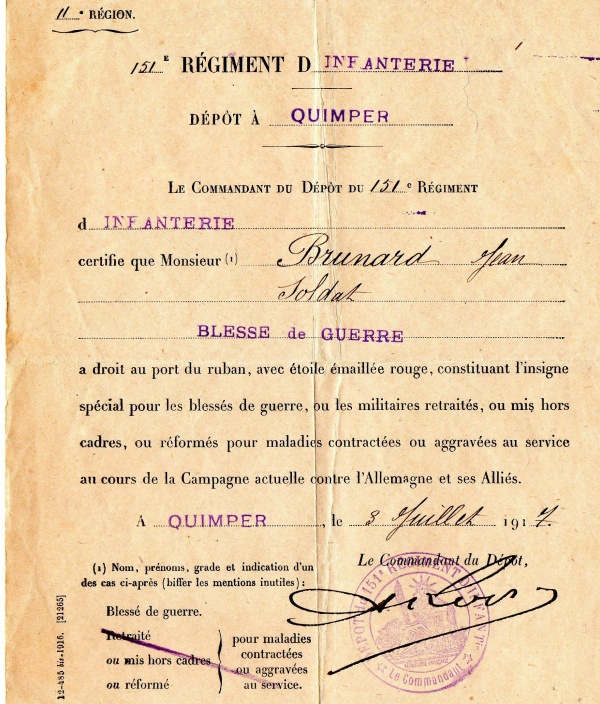 11e RÉGION.
151E RÉGIMENT D INFANTERIE
DÉPÔT À QUIMPER
LE COMMANDANT DU DÉPÔT DU 151e RÉGIMENT
d INFANTERIE
certifie que Monsieur (1) Brunard Jean
Soldat
BLESSE de GUERRE
a droit au port du ruban, avec étoile émaillée rouge, constituant l'insigne
spécial pour les blessés de guerre, ou les militaires retraités, ou mis hors
cadres, ou réformés pour maladies contractées ou aggravées au service
au cours de la Campagne actuelle contre l'Allemagne et ses Alliés.
À QUIMPER, le 3 Juillet 1917.
Le Commandant du Dépôt,
(1) Nom, prénoms, grade et indication d'un
des cas ci-après (biffer les mentions inutiles) :
Blessé de guerre.
Retraité
ou mis hors cadres
ou réformé
pour maladies
contractées
ou aggravées
au service.
DEPOT DU 151e REGIMENT D'INFANTIE
Le Commandant
12-485 bis-1916. [21265]